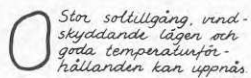 Stor soltillgång, vind-
skyddande lägen och
goda temperaturför-
hållanden kan uppnås.